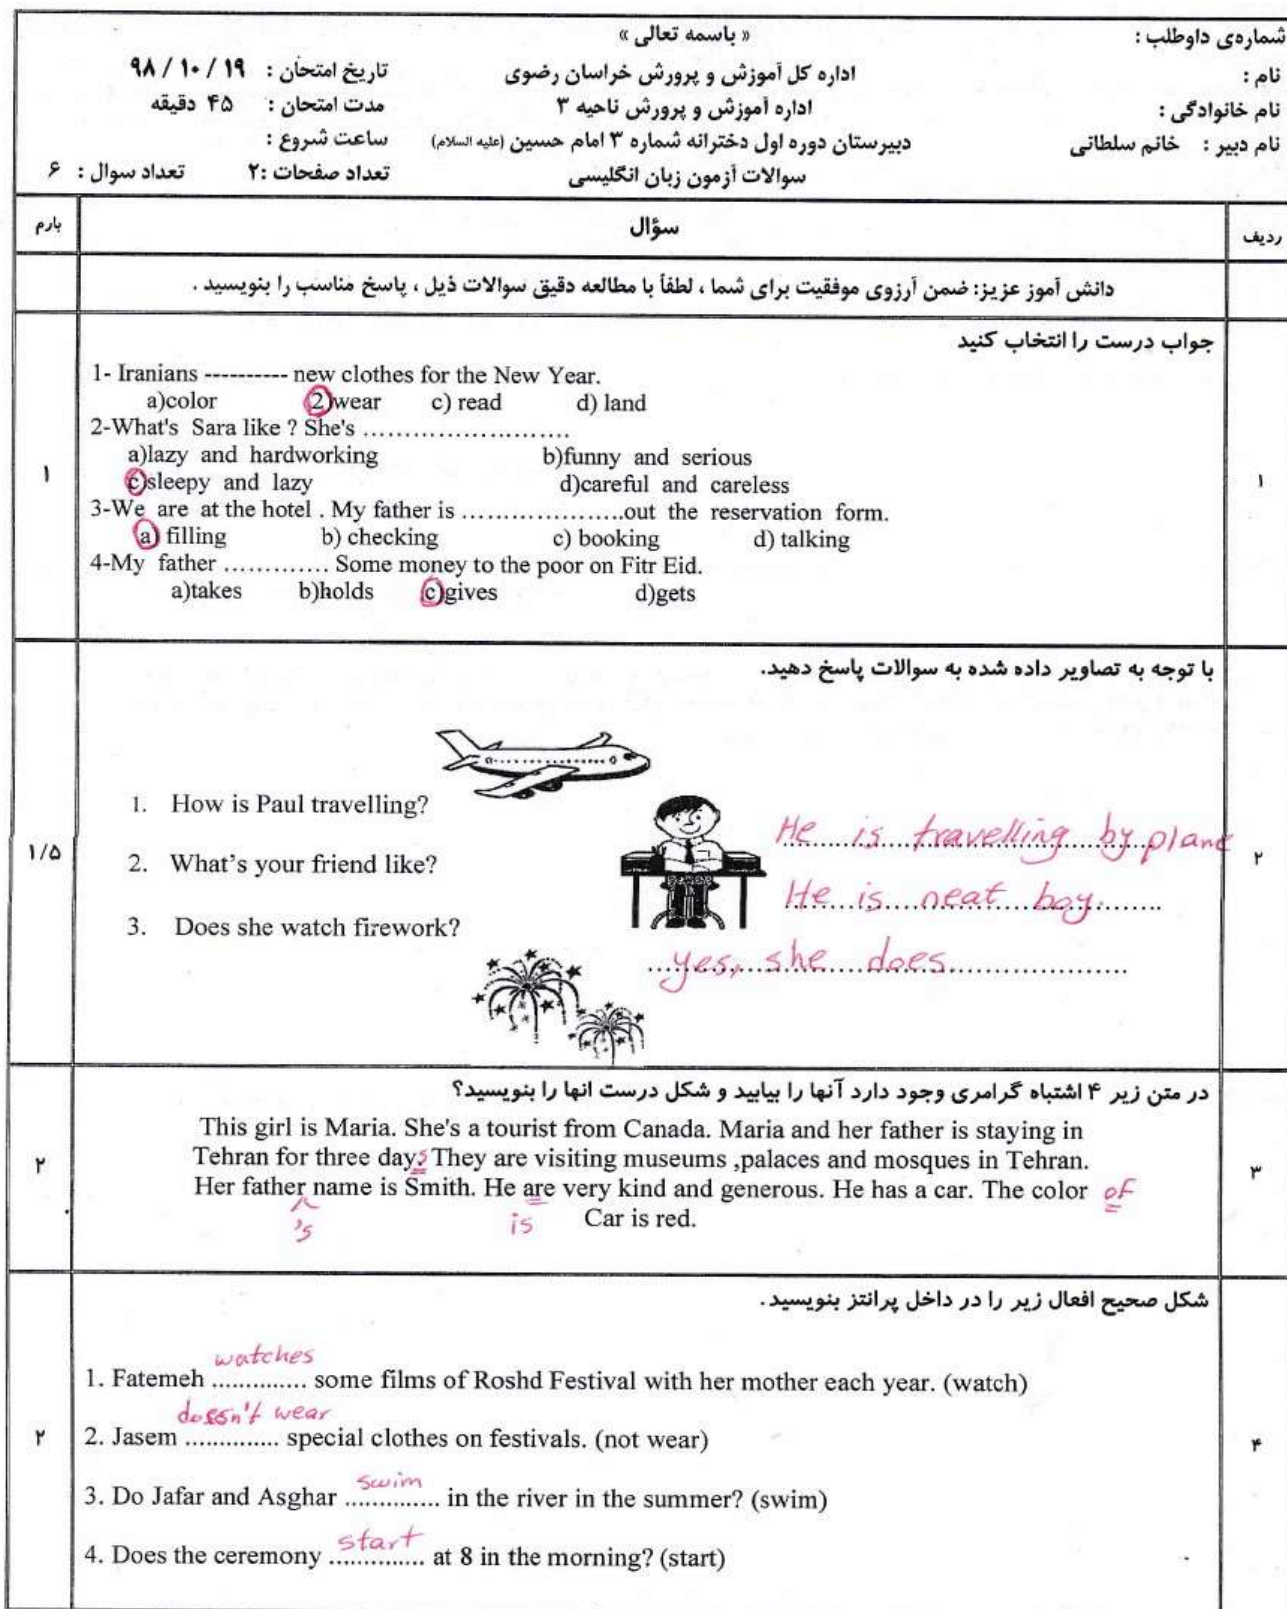 « باسمه تعالی »
شماره‌ی داوطلب :
اداره کل آموزش و پرورش خراسان رضوی
تاریخ امتحان : ۱۹ / ۱۰ / ۹۸
نام :
اداره آموزش و پرورش ناحیه ۳
مدت امتحان : ۴۵ دقیقه
نام خانوادگی :
دبیرستان دوره اول دخترانه شماره ۳ امام حسین (علیه السلام)
ساعت شروع :
نام دبیر : خانم سلطانی
سوالات آزمون زبان انگلیسی
تعداد صفحات :۲ تعداد سوال : ۶
ردیف سؤال بارم
دانش آموز عزیز: ضمن آرزوی موفقیت برای شما ، لطفاً با مطالعه دقیق سوالات ذیل ، پاسخ مناسب را بنویسید .
۱
جواب درست را انتخاب کنید
1- Iranians ---------- new clothes for the New Year.
a)color 2)wear c) read d) land
2-What's Sara like ? She's ............................
a)lazy and hardworking b)funny and serious
c)sleepy and lazy d)careful and careless
3-We are at the hotel . My father is ......................out the reservation form.
a) filling b) checking c) booking d) talking
4-My father ............. Some money to the poor on Fitr Eid.
a)takes b)holds c)gives d)gets
۱
۲
با توجه به تصاویر داده شده به سوالات پاسخ دهید.
1. How is Paul travelling?
He is travelling by plane
2. What's your friend like?
He is neat boy
3. Does she watch firework?
yes, she does
۱/۵
۳
در متن زیر ۴ اشتباه گرامری وجود دارد آنها را بیابید و شکل درست انها را بنویسید؟
This girl is Maria. She's a tourist from Canada. Maria and her father is staying in
Tehran for three day.s They are visiting museums ,palaces and mosques in Tehran.
Her father name is Smith. He are very kind and generous. He has a car. The color of
's is Car is red.
۲
۴
شکل صحیح افعال زیر را در داخل پرانتز بنویسید.
watches
1. Fatemeh .............. some films of Roshd Festival with her mother each year. (watch)
doesn't wear
2. Jasem .............. special clothes on festivals. (not wear)
swim
3. Do Jafar and Asghar .............. in the river in the summer? (swim)
start
4. Does the ceremony .............. at 8 in the morning? (start)
۲